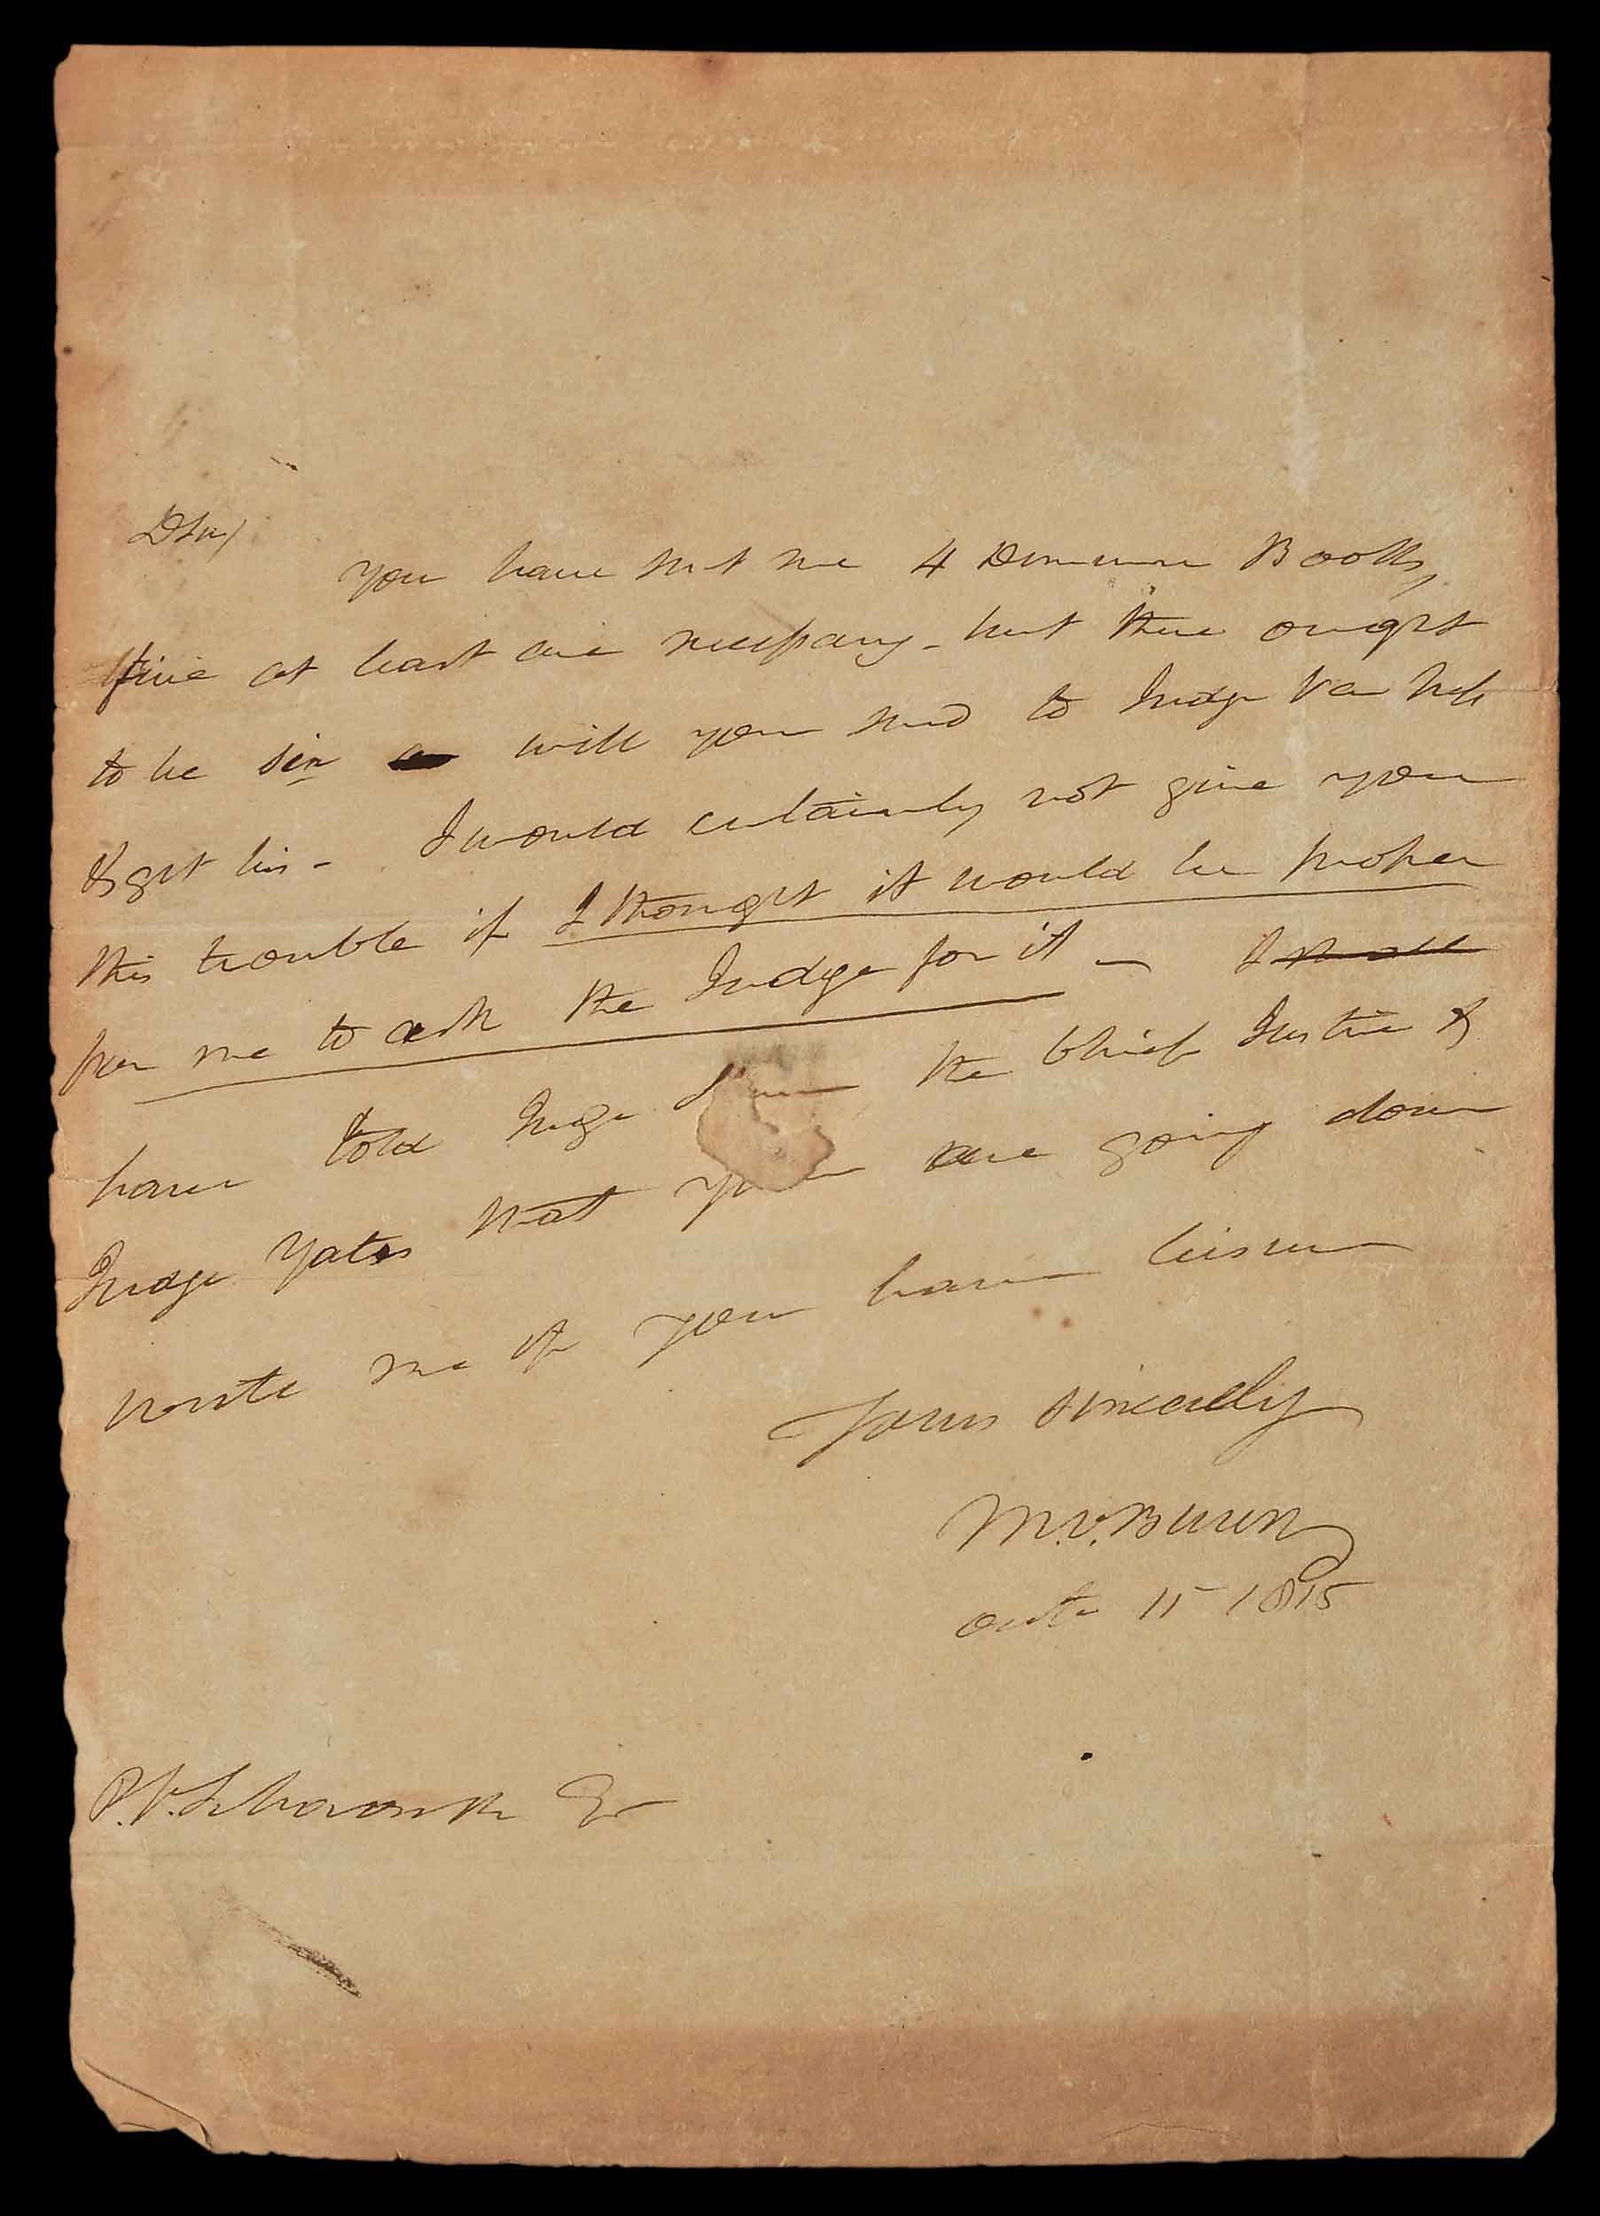 D Sir/
You have sent me 4 Demurrer Books,
five at least are necessary - but there ought
to be six will you send to Judge Van Nefs
& get his - I would certainly not give you
this trouble if I thought it would be proper
for me to ask the Judge for it - I shall
have told Juge the Chief Justice &
Judge Yates that you are going down
write me if you have leisure
Yours sincerely
M.V. Buren
Octo 15 1815